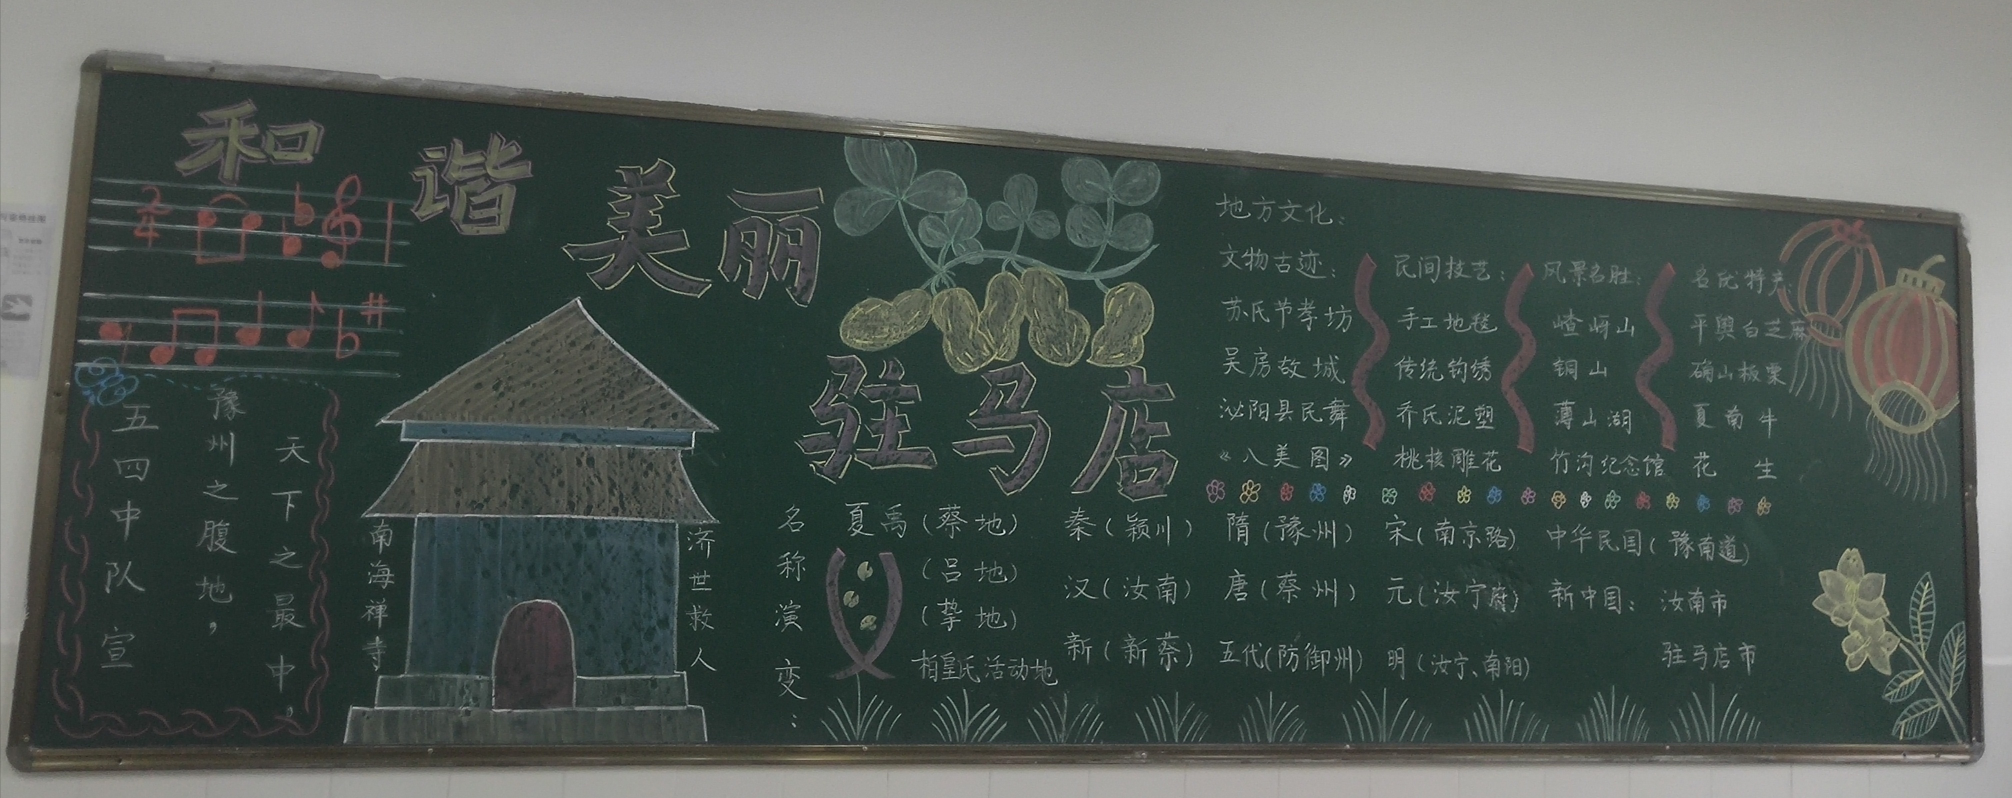 和谐美丽
驻马店
天下之最中。
豫州之腹地，
五四中队宣
南海禅寺
济世救人
地方文化：
文物古迹：
苏氏节孝坊
吴房故城
泌阳县民舞
《八美图》
民间技艺：
手工地毯
传统钩绣
乔氏泥塑
桃核雕花
风景名胜：
嵖岈山
铜山
薄山湖
竹沟纪念馆
名优特产：
平舆白芝麻
确山板栗
夏南牛
花生
名称演变：
夏禹（蔡地）
（吕地）
（挚地）
柏皇氏活动地
秦（颍川）
汉（汝南）
新（新蔡）
隋（豫州）
唐（蔡州）
五代（防御州）
宋（南京路）
元（汝宁府）
明（汝宁、南阳）
中华民国（豫南道）
新中国：汝南市
驻马店市